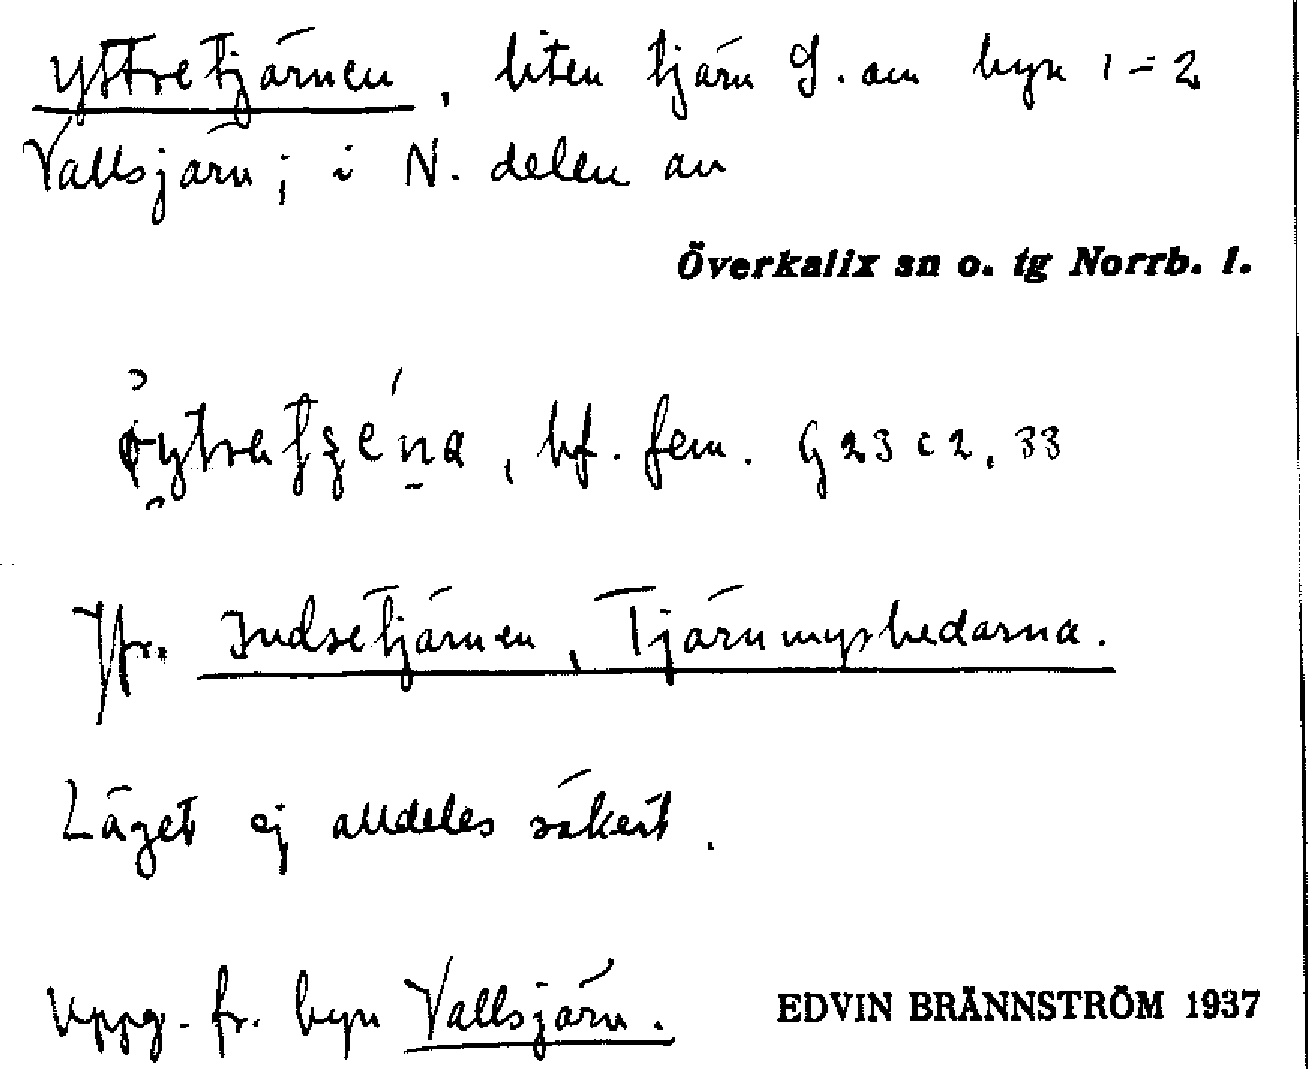 Yttretjärnen, liten tjärn S. om byn 1=2
Vallsjärn; i N. delen av
Överkalix sn o. tg Norrb. l.
, bf. fem. G 23 c 2, 33
Jfr. Indsetjärnen, Tjärnmyrhedarna.
Läget ej alldeles säkert.
Uppg. fr. byn Vallsjärn.
EDVIN BRÄNNSTRÖM 1937